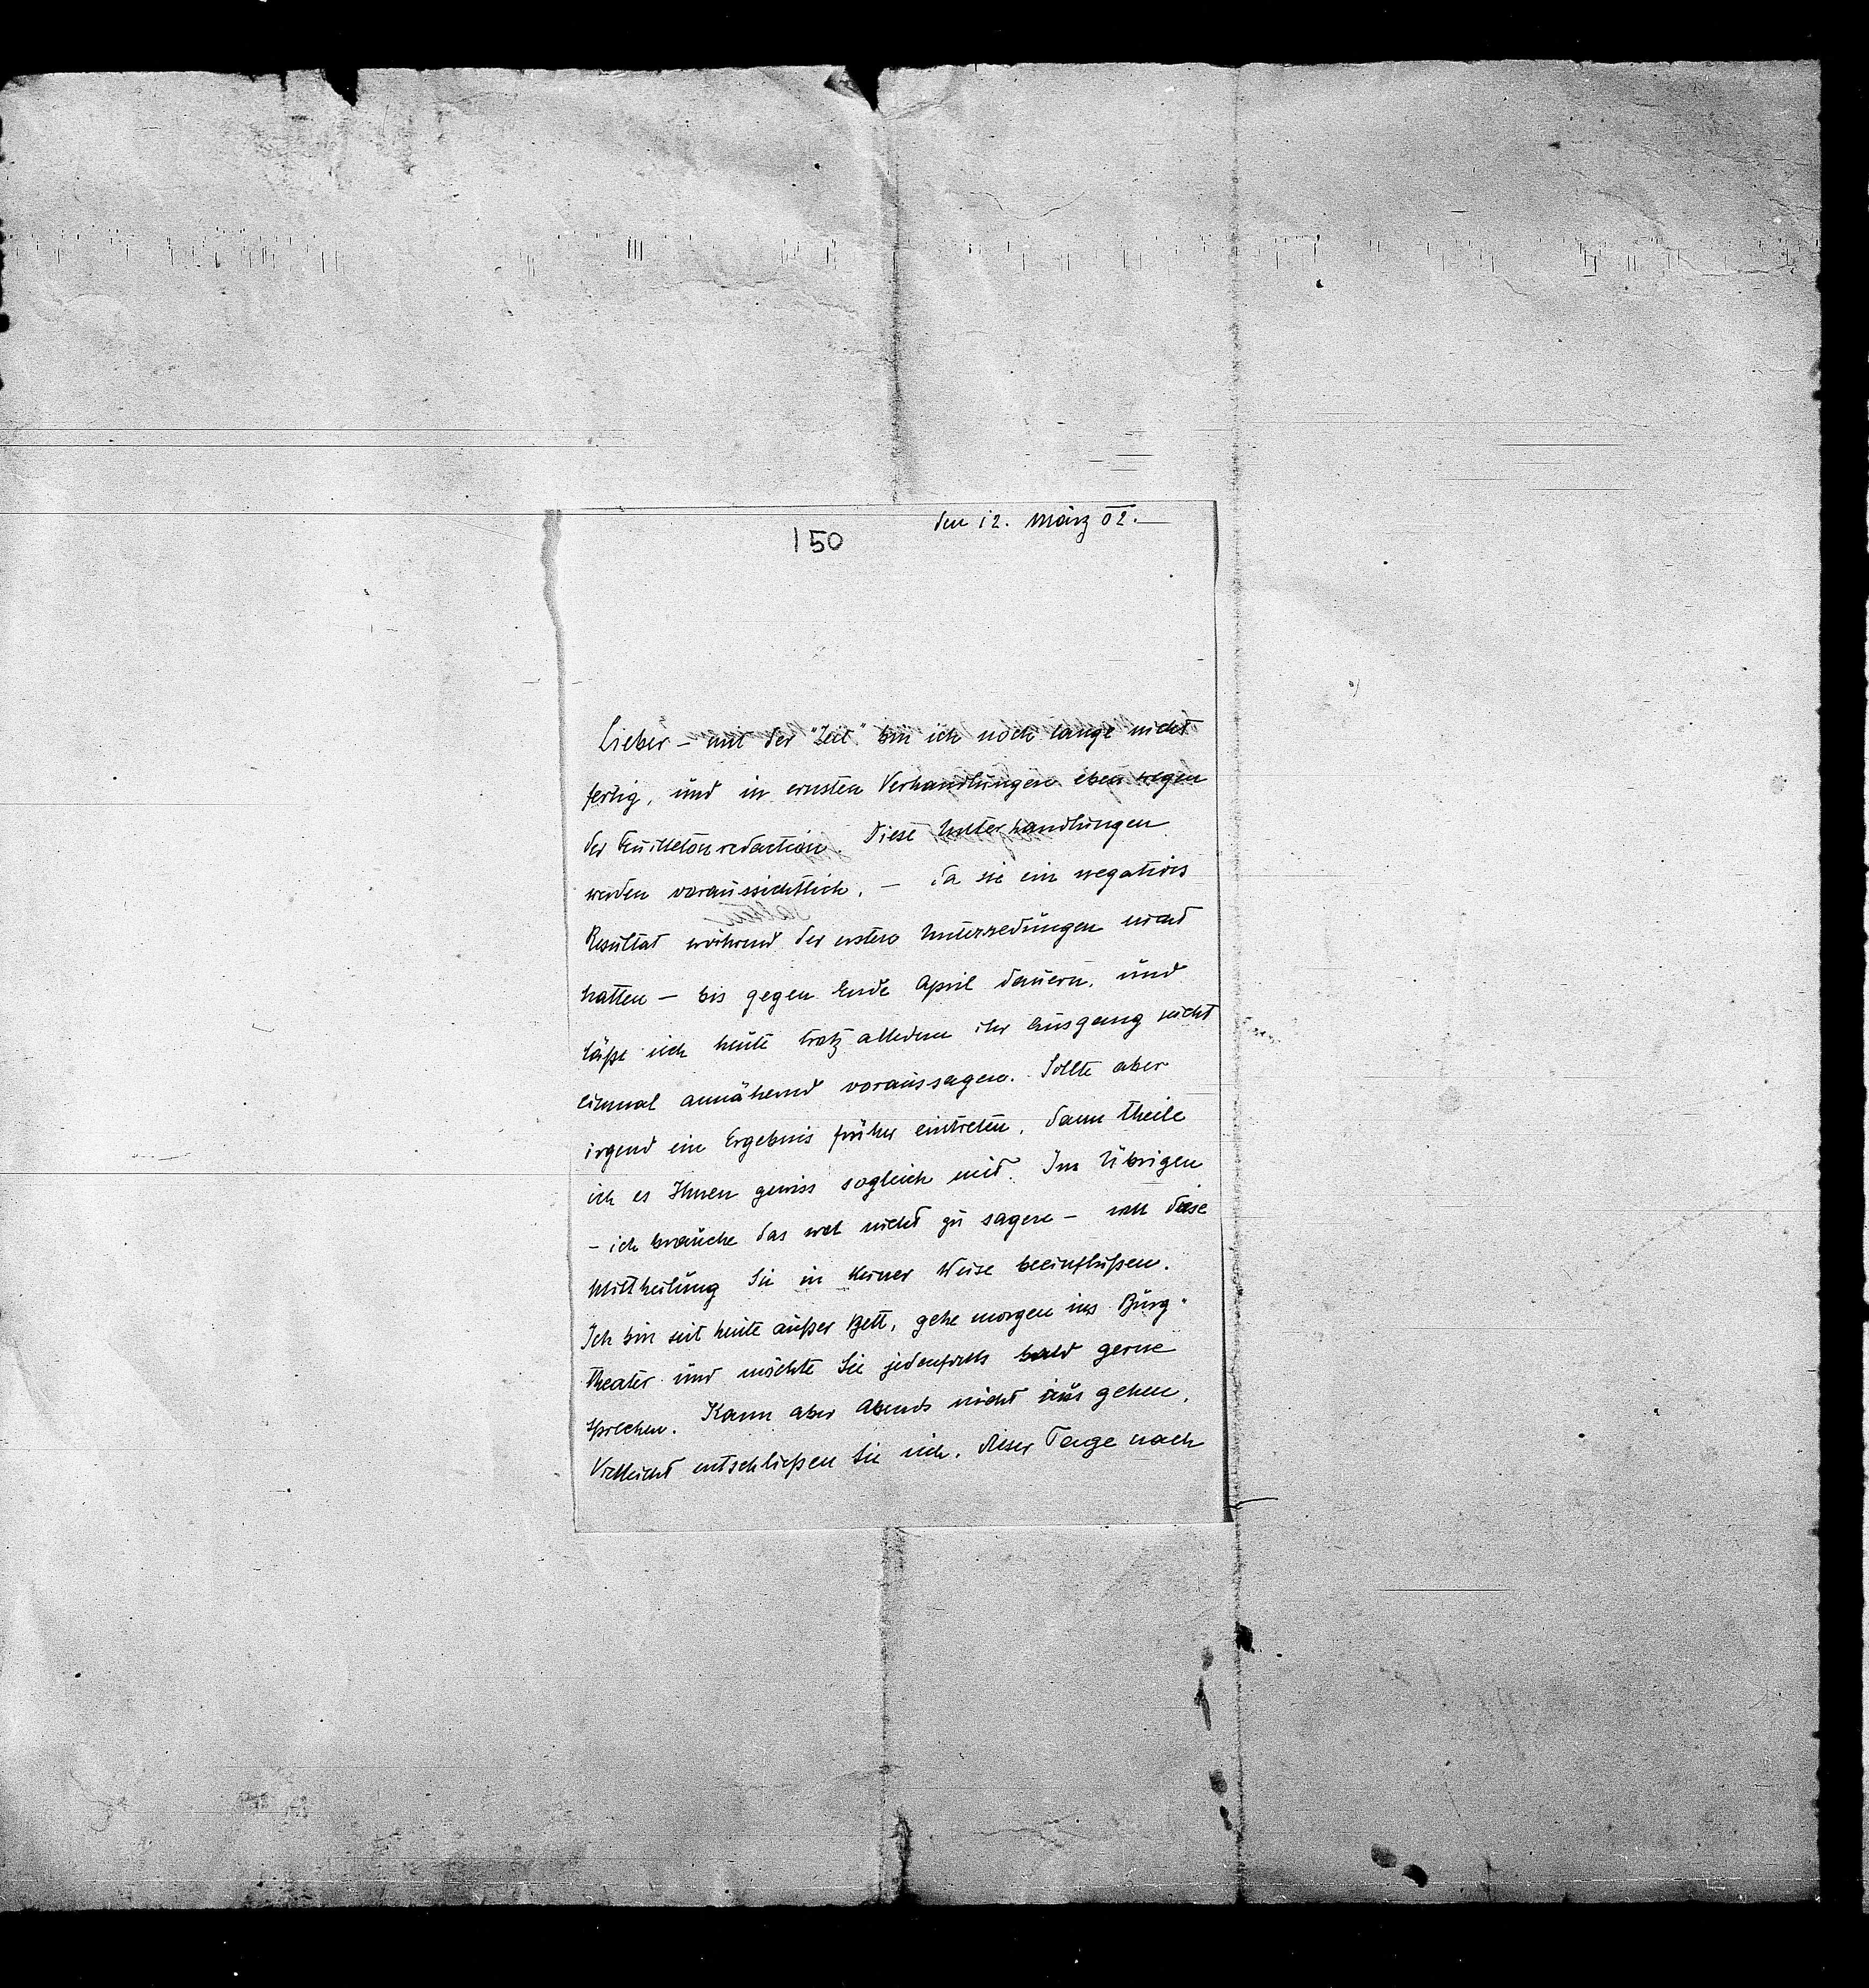 150
den 12. März 02.
Lieber – mit der "Zeit" bin ich noch lange nicht
fertig, und in ernsten Verhandlungen eben wegen
der Feuilletonredaction. Diese Unterhandlungen
werden voraussichtlich, – da sie ein negatives
Resultat während der ersten Unterredungen nicht
hatten – bis gegen Ende April dauern, und
läßt sich heute trotz alledem ihr Ausgang nicht
einmal annähernd voraussagen. Sollte aber
irgend ein Ergebnis früher eintreten, dann theile
ich es Ihnen gewiss sogleich mit. Im Übrigen
– ich brauche das wol nicht zu sagen – soll diese
Mittheilung Sie in keiner Weise beeinflußen.
Ich bin seit heute außer Bett, gehe morgen ins Burg-
theater und möchte Sie jedenfalls bald gerne
sprechen. Kann aber Abends nicht aus gehen.
Vielleicht entschließen Sie sich, dieser Tage nach